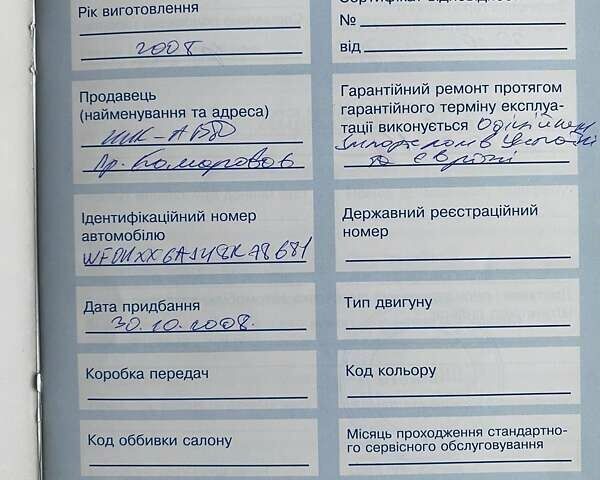 Рік виготовлення
2008
№
від
Продавець
(найменування та адреса)
пр. Комарова 6
Гарантійний ремонт протягом
гарантійного терміну експлуа-
тації виконується Офіційним
імпортером в Україні
та Європі
Ідентифікаційний номер
автомобілю
Державний реєстраційний
номер
Дата придбання
30.10.2008.
Тип двигуну
Коробка передач
Код кольору
Код оббивки салону
Місяць проходження стандартно-
го сервісного обслуговування